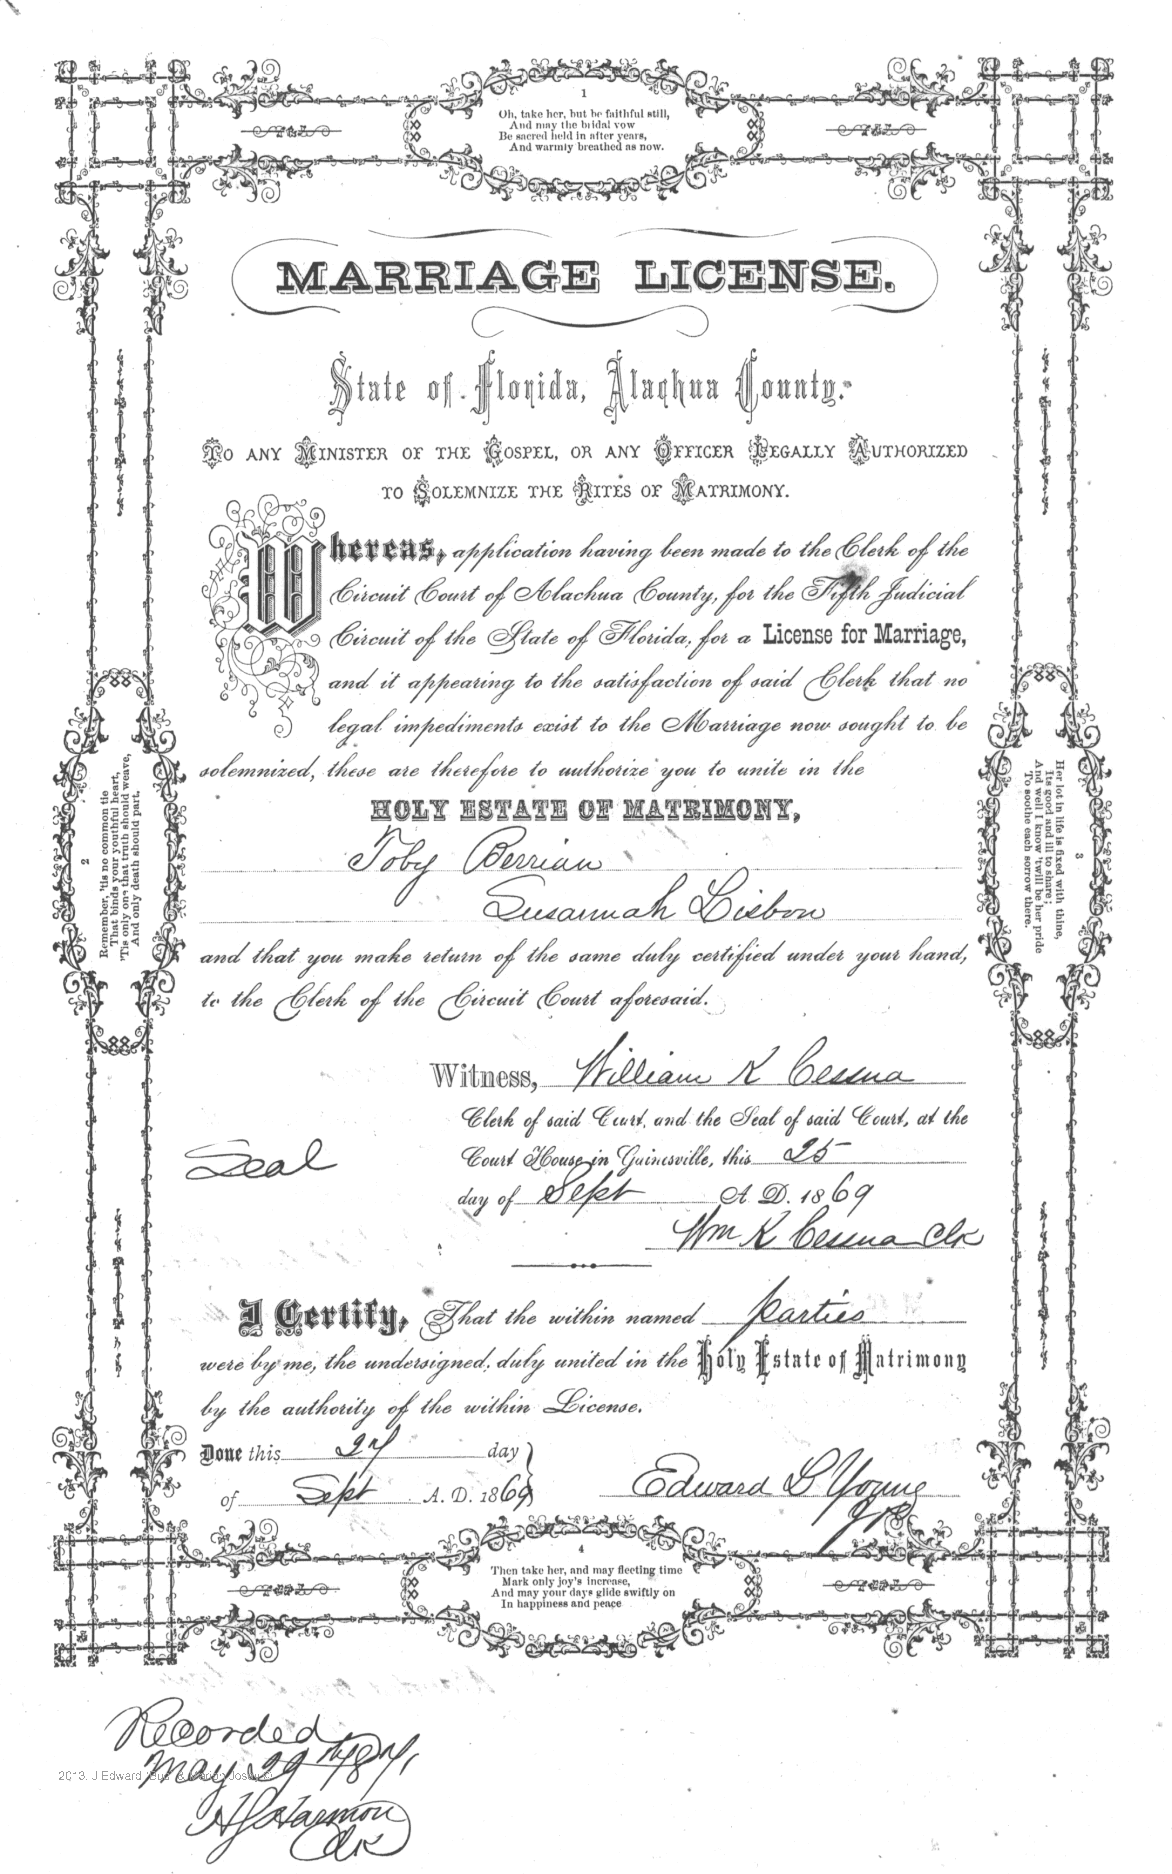 1
Oh, take her, but be faithful still,
And may the bridal vow
Be sacred held in after years,
And warmly breathed as now.
MARRIAGE LICENSE.
State of Florida, Alachua County.
TO ANY MINISTER OF THE GOSPEL, OR ANY OFFICER LEGALLY AUTHORIZED
TO SOLEMNIZE THE RITES OF MATRIMONY.
Whereas, application having been made to the Clerk of the
Circuit Court of Alachua County, for the Fifth Judicial
Circuit of the State of Florida, for a License for Marriage,
and it appearing to the satisfaction of said Clerk that no
legal impediments exist to the Marriage now sought to be
solemnized, these are therefore to authorize you to unite in the
HOLY ESTATE OF MATRIMONY,
Toby Berrian
Susannah Lisbon
and that you make return of the same duly certified under your hand,
to the Clerk of the Circuit Court aforesaid.
2
Remember, 'tis no common tie
That binds your youthful heart,
'Tis only one that truth should weave,
And only death should part.
3
Her lot in life is fixed with thine,
Its good and ill to share;
And well I know 'twill be her pride
To soothe each sorrow there.
Witness, William K Cessna
Clerk of said Court, and the Seal of said Court, at the
Seal
Court House in Gainesville, this 25
day of Sept A. D. 1869
Wm K Cessna Clk
I Certify, That the within named parties
were by me, the undersigned, duly united in the Holy Estate of Matrimony
by the authority of the within License.
Done this 27 day
of Sept A. D. 1869
Edward L Young
JP
4
Then take her, and may fleeting time
Mark only joy's increase,
And may your days glide swiftly on
In happiness and peace
Recorded
May 29th 1871
2013. J Edward
Harmon
Clk